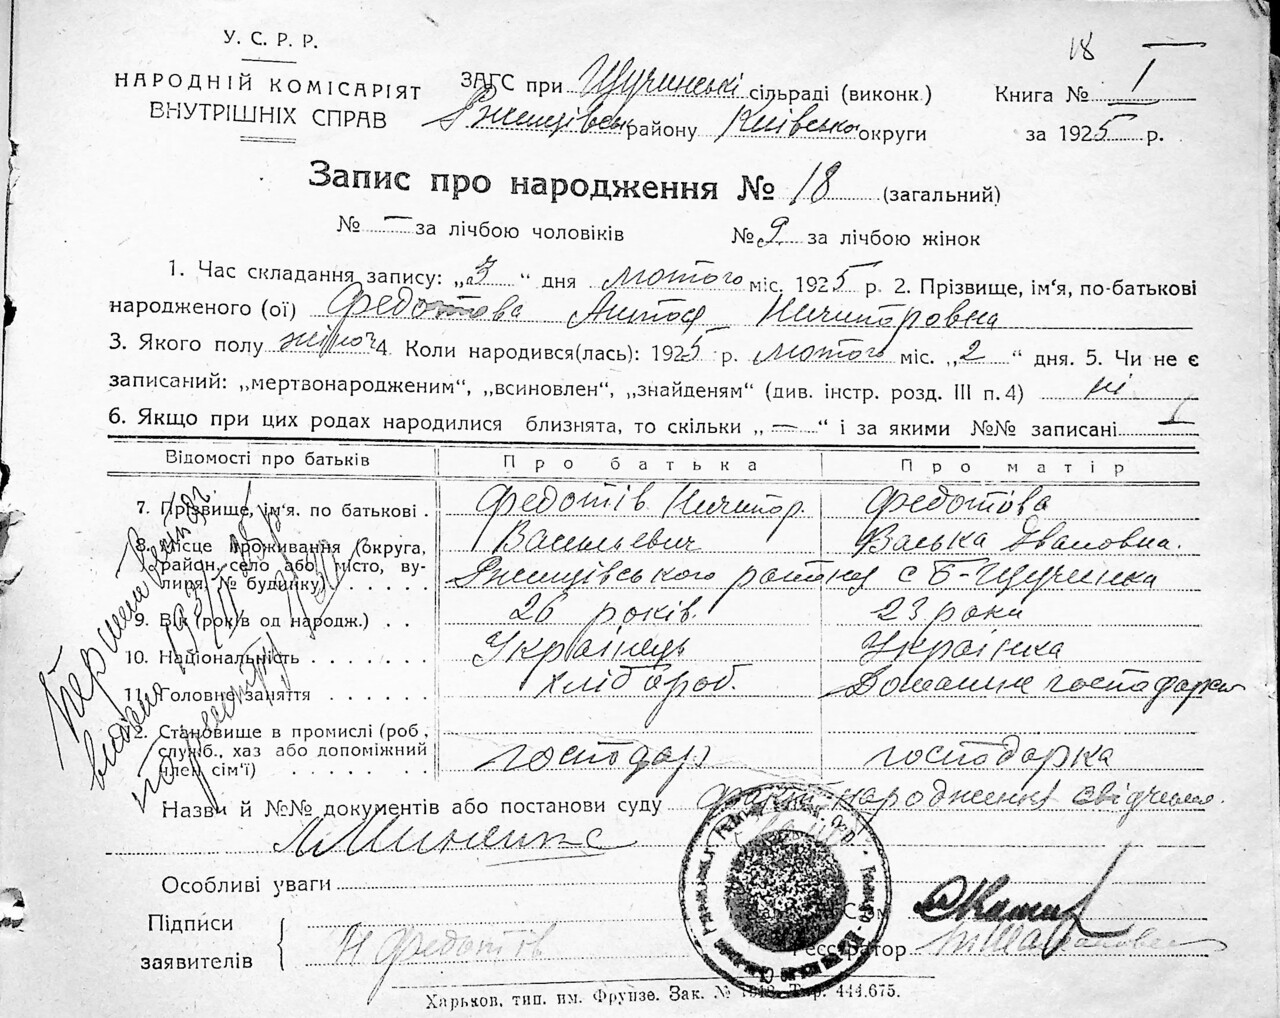 18
У. С. Р. Р.
НАРОДНІЙ КОМІСАРІЯТ
ВНУТРІШНІХ СПРАВ
ЗАГС при Щучинські сільраді (виконк.)
Ржищівськ району Київсько округи
Книга № I
за 1925 р.
Запис про народження № 18 (загальний)
№ — за лічбою чоловіків № 9 за лічбою жінок
1. Час складання запису: „3“ дня лютого міс. 1925 р. 2. Прізвище, ім‘я, по-батькові
народженого (ої) Федотова Ничипоровна
3. Якого полу жіноч 4. Коли народився(лась): 1925 р. лютого міс. „2“ дня. 5. Чи не є
записаний: „мертвонародженим“, „всиновлен“, „знайденям“ (див. інстр. розд. III п. 4) ні
6. Якщо при цих родах народилися близнята, то скільки „—“ і за якими №№ записані
Відомості про батьків Про батька Про матір
7. Прізвище, ім‘я. по батькові . Федотів Ничипор. Федотова
Васильевич Васька Івановна.
8. Місце проживання (округа,
район, село або місто, ву-
лиця, № будинку) . . . . . Ржищівського району с Б-Щучинка
9. Вік (років од народж.) . . 26 років. 23 роки
10. Національність . . . . . . Українець Українка
11. Головне заняття . . . . . хлібороб. Домашнє господарство
12. Становище в промислі (роб.,
служб., хаз або допоміжний
член сім‘ї) . . . . . . господар господарка
Назви й №№ документів або постанови суду факт народження свідчила
Особливі уваги
Підписи
заявителів Н Федотів
Реєстратор
Харьков, тип. им. Фрунзе. Зак. № Тир. 444.675.